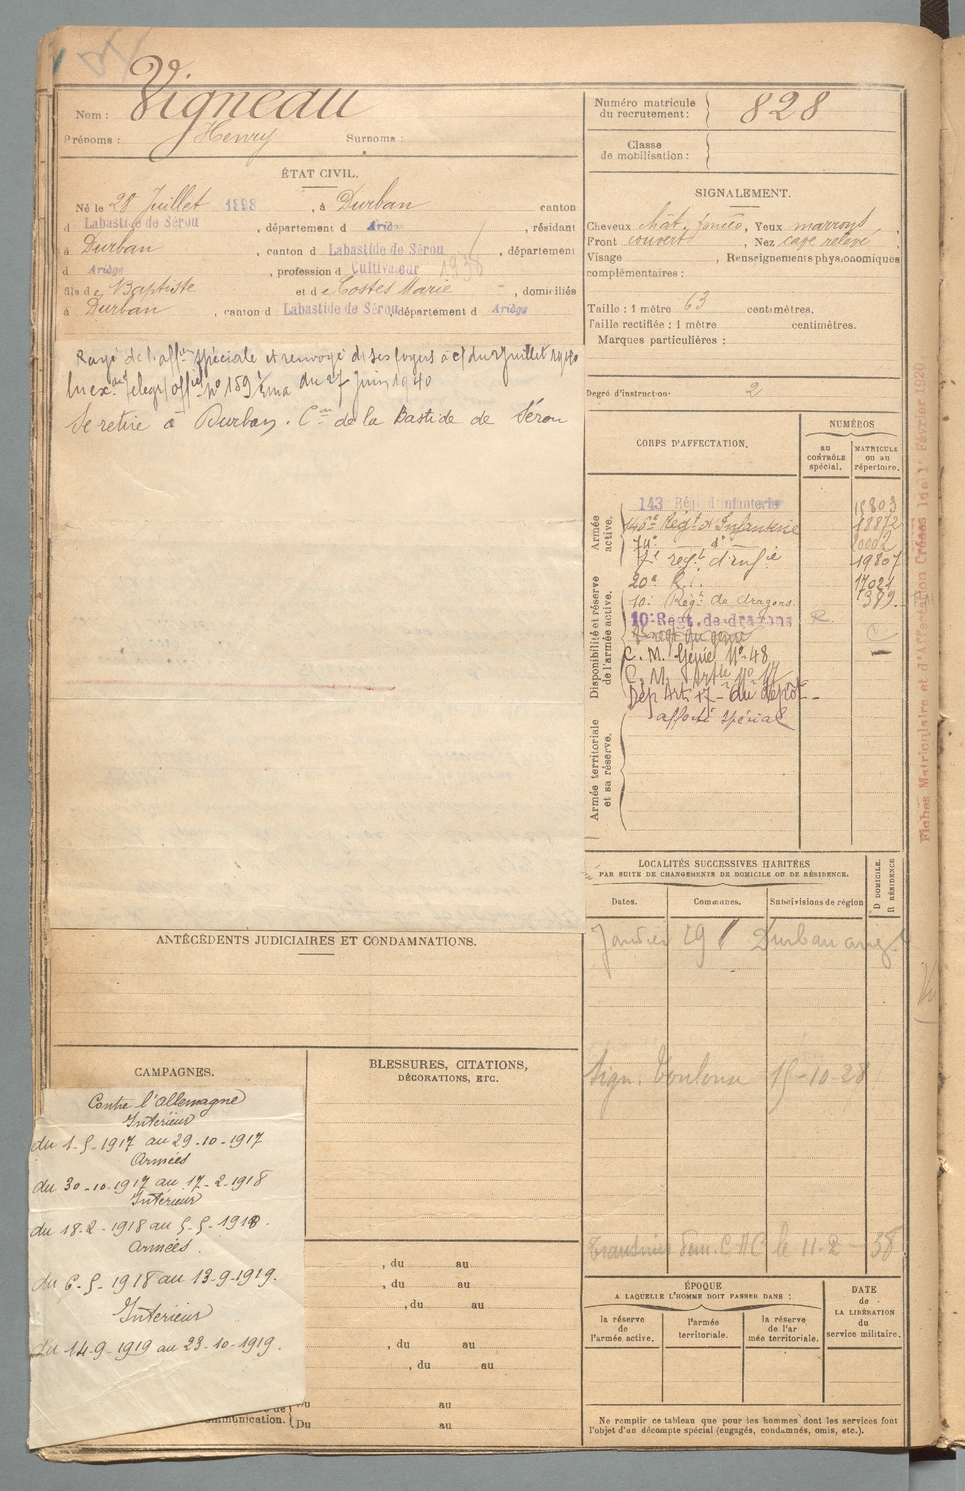 Nom : Vigneau
Prénoms : Henry Surnoms :
ÉTAT CIVIL.
Né le 28 Juillet 1898, à Durban canton
d Labastide de Sérou, département d Ariège, résidant
à Durban, canton d Labastide de Sérou, département
d Ariège, profession d Cultivateur 1938
fils de Baptiste et de Costes Marie, domiciliés
à Durban, canton d Labastide de Sérou, département d Ariège
Rayé de l'aff. spéciale et renvoyé ds ses foyers à c/ du 2 Juillet 1940
du 27 Juin 1940
Se retire à Durban. Con de la Bastide de Sérou
ANTÉCÉDENTS JUDICIAIRES ET CONDAMNATIONS.
CAMPAGNES.
Contre l'allemagne
Intérieur
du 1-5-1917 au 29-10-1917
Armées
du 30-10-1917 au 17-2-1918
Intérieur
du 18-2-1918 au 5-5-1918.
Armées.
du 6-5-1918 au 13-9-1919.
Intérieur
du 14-9-1919 au 23-10-1919.
BLESSURES, CITATIONS,
DÉCORATIONS, ETC.
, du au
, du au
, du au
, du au
, du au
Du au
munication. Du au
Numéro matricule
du recrutement : 828
Classe
de mobilisation :
SIGNALEMENT.
Cheveux chât. foncé, Yeux marrons,
Front couvert, Nez cave relevé
Visage , Renseignements physionomiques
complémentaires :
Taille : 1 mètre 63 centimètres.
Taille rectifiée : 1 mètre centimètres.
Marques particulières :
Degré d'instruction : 2
CORPS D'AFFECTATION.
NUMÉROS
au
CONTRÔLE
spécial.
MATRICULE
ou au
répertoire.
Armée
active.
143 Rég. d'infanterie 15803
146e Régt d'Infanterie 18872
74e do 20002
19807
20e R.I. 17021
Disponibilité et réserve
de l'armée active.
10e Régt de dragons. 389
10e Régt. de dragons R C
C. M. Génie No 48
C. M. Artie No 17
Dép Art 17 - du dépôt
affecté spécial
Armée territoriale
et sa réserve.
LOCALITÉS SUCCESSIVES HABITÉES
PAR SUITE DE CHANGEMENTS DE DOMICILE OU DE RÉSIDENCE.
Dates.
Communes.
Subdivisions de région
D DOMICILE.
R RÉSIDENCE
Janvier Durban
Sign. Toulouse 15-10-28
le 11-2-38
ÉPOQUE
A LAQUELLE L'HOMME DOIT PASSER DANS :
la réserve
de
l'armée active.
l'armée
territoriale.
la réserve
de l'ar
mée territoriale.
DATE
de
LA LIBÉRATION
du
service militaire.
Ne remplir ce tableau que pour les hommes dont les services font
l'objet d'un décompte spécial (engagés, condamnés, omis, etc.).
Fiches Matriculaire et d'Affectation Créées le 1er Février 1920